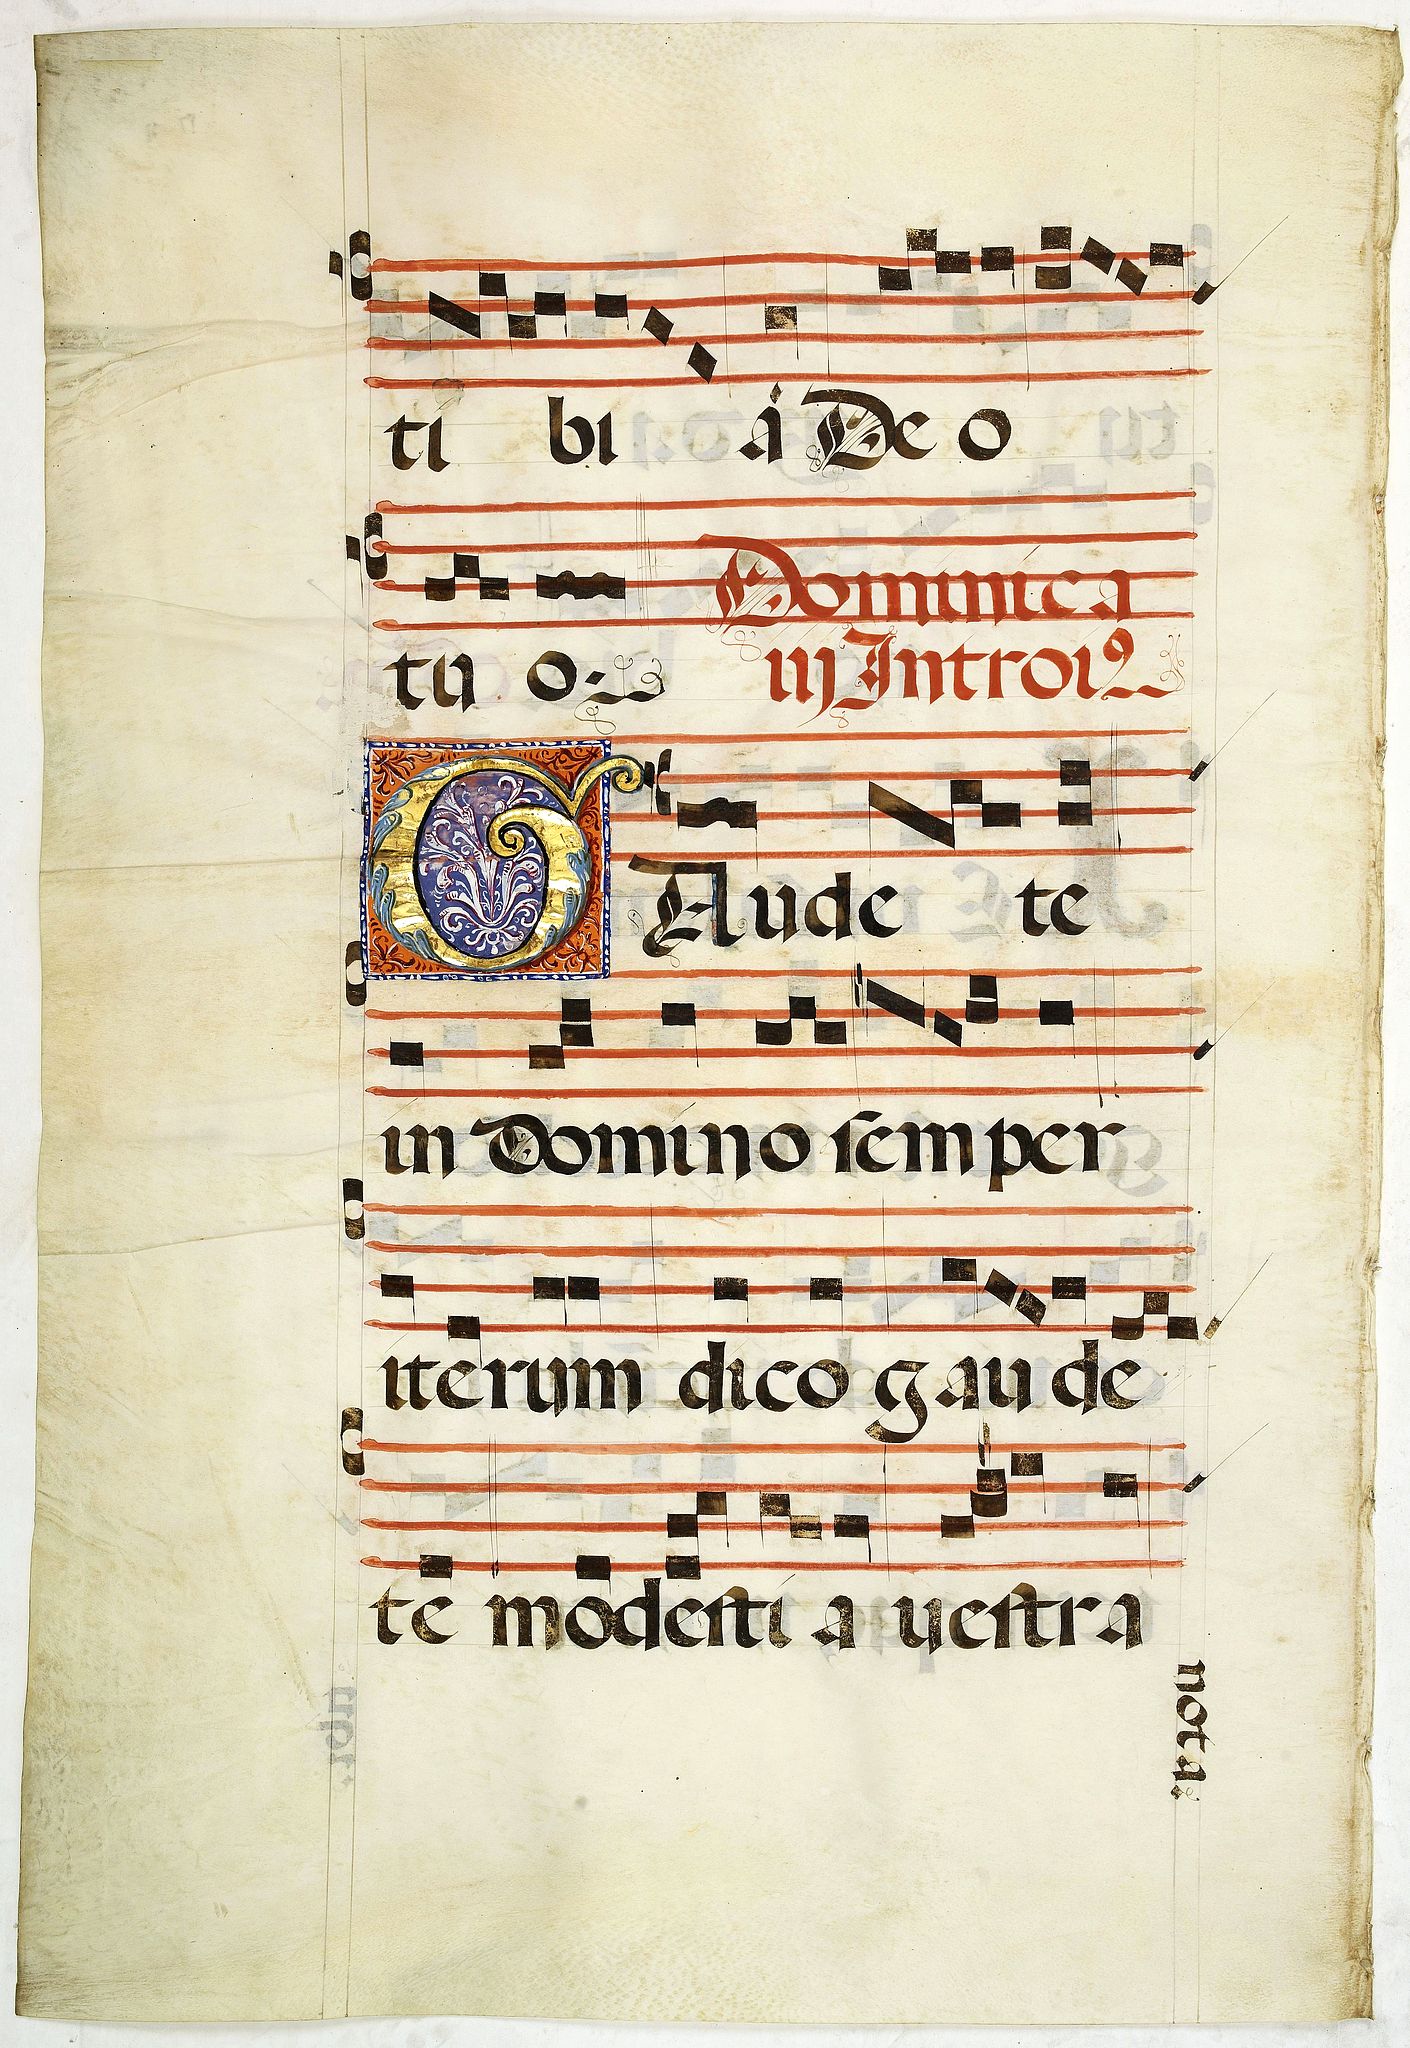 ti bi á Deo
tu o.
Dominica
iij Introi⁹
GAude te
in Domino semper
iterum dico gaude
te modesti a uestra
nota.